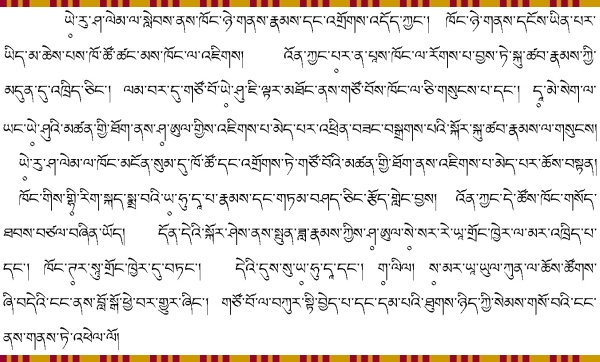 ཡེ་རུ་ཤ་ལེམ་ལ་སླེབས་ནས་ཁོང་ཉེ་གནས་རྣམས་དང་འགྲོགས་འདོད་ཀྱང་། ཁོང་ཉེ་གནས་དངོས་ཡིན་པར་
ཡིད་མ་ཆེས་པས་ཁོ་ཚོ་ཚང་མས་ཁོང་ལ་འཇིགས། འོན་ཀྱང་པར་ན་པཱས་ཁོང་ལ་རོགས་པ་བྱས་ཏེ་སྐུ་ཚབ་རྣམས་ཀྱི་
མདུན་དུ་འཁྲིད་ཅིང་། ལམ་བར་དུ་གཙོ་བོ་ཡེ་ཤུ་ཇི་ལྟར་མཐོང་ནས་གཙོ་བོས་ཁོང་ལ་ཅི་གསུངས་པ་དང་། དཱ་མེ་སེག་ལ་
ཡང་ཡེ་ཤུའི་མཚན་གྱི་ཐོག་ནས་ཤ་ཨུལ་གྱིས་འཇིགས་པ་མེད་པར་འཕྲིན་བཟང་བསྒྲགས་པའི་སྐོར་སྐུ་ཚབ་རྣམས་ལ་གསུངས།
ཡེ་རུ་ཤ་ལེམ་ལ་ཁོང་མངོན་སུམ་དུ་ཁོ་ཚོ་དང་འགྲོགས་ཏེ་གཙོ་བོའི་མཚན་གྱི་ཐོག་ནས་འཇིགས་པ་མེད་པར་ཆོས་བསྟན།
ཁོང་གིས་གྷི་རིག་སྐད་སྨྲ་བའི་ཡ་ཧུ་དཱ་པ་རྣམས་དང་གཏམ་བཤད་ཅིང་རྩོད་གླེང་བྱས། འོན་ཀྱང་དེ་ཚོས་ཁོང་གསོད་
ཐབས་བཙལ་བཞིན་ཡོད། དོན་དེའི་སྐོར་ཤེས་ནས་སྤུན་ཟླ་རྣམས་ཀྱིས་ཤ་ཨུལ་སེ་སར་རེ་ཡཱ་གྲོང་ཁྱེར་ལ་མར་འཁྲིད་པ་
དང་། ཁོང་ཏར་སུ་གྲོང་ཁྱེར་དུ་བཏང་། དེའི་དུས་སུ་ཡ་ཧུ་དཱ་དང་། གཱ་ལིལ། ས་མར་ཡཱ་ཡུལ་ཀུན་ལ་ཆོས་ཚོགས་
ཞི་བདེའི་ངང་ནས་བློ་སྒོ་ཕྱེ་བར་གྱུར་ཞིང་། གཙོ་བོ་ལ་བཀུར་སྟི་བྱེད་པ་དང་དམ་པའི་ཐུགས་ཉིད་ཀྱི་སེམས་གསོ་བའི་ངང་
ནས་གནས་ཏེ་འཕེལ་ལོ།